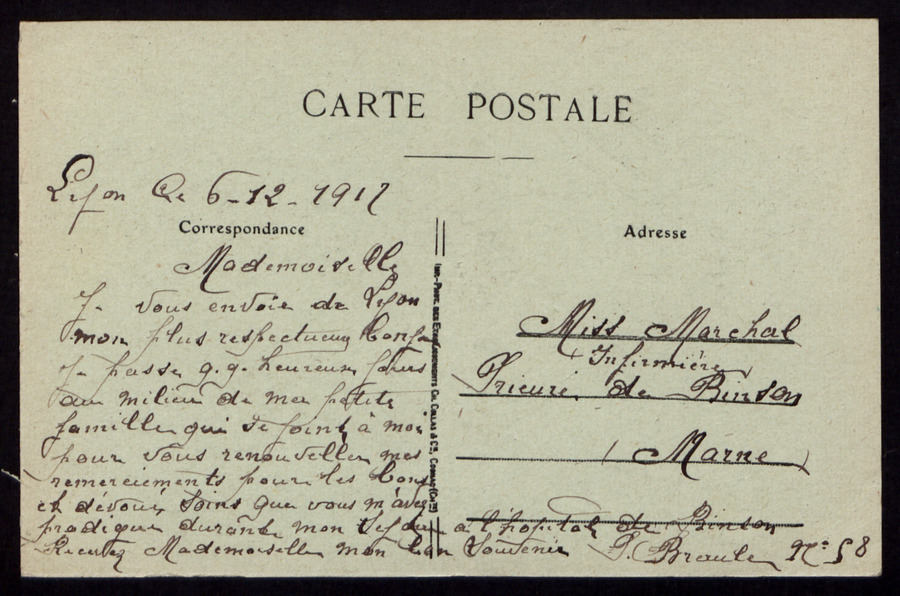 CARTE POSTALE
Lyon Le 6-12-1917
Correspondance
Adresse
Mademoiselle
Je vous envoie de Lyon
mon plus respectueux
Je passe q.q. heureux jours
au milieu de ma petite
famille qui se joint à moi
pour vous renouveller mes
remerciements pour les bons
et dévoués soins que vous m'avez
prodigué durant mon séjour à l'hopital de Binson
Recevez Mademoiselle mon bon Souvenir
Miss Marchal
(Infirmière)
Prieuré de Binson
(Marne)
N° 58